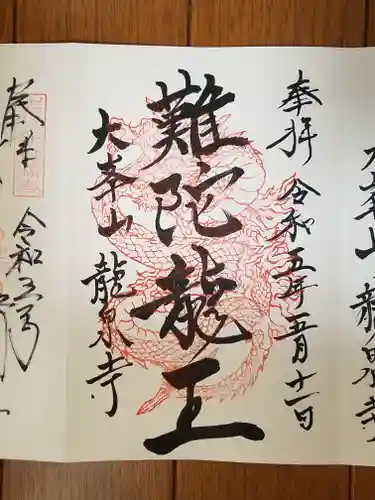 大峯山 龍泉寺
奉拝 令和五年五月十一日
難陀龍王
大峯山 龍泉寺
奉拝
令和五年